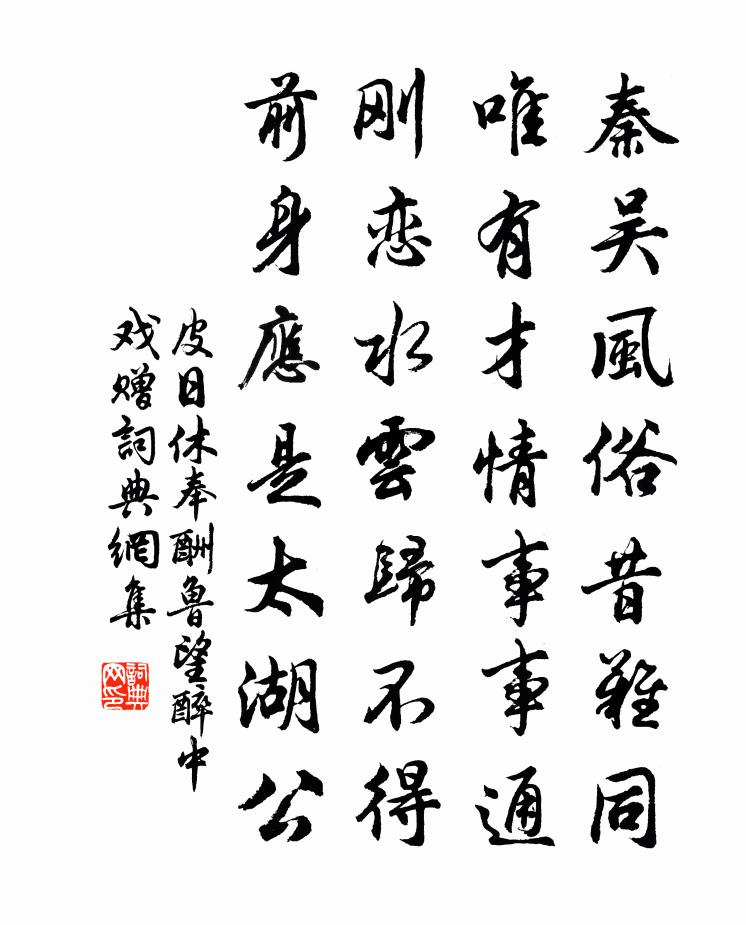 秦吴風俗昔難同
唯有才情事事通
刚恋水雲歸不得
前身應是太湖公
皮日休奉酬魯望醉中
戏贈詞典網集
詞典网印